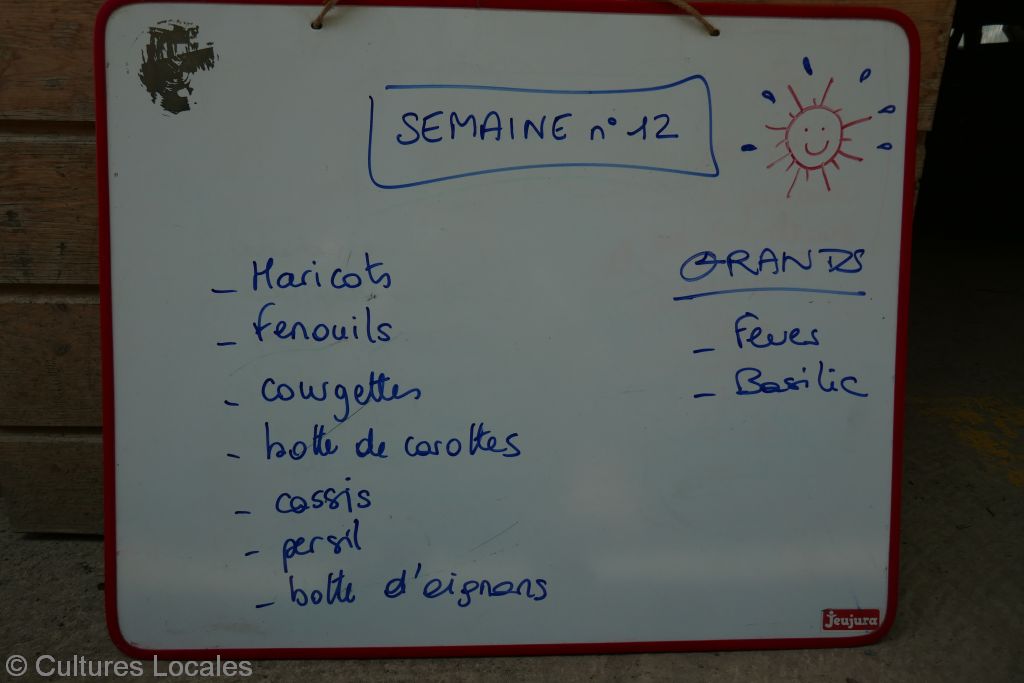 SEMAINE n° 12
- Haricots
- fenouils
- courgettes
- botte de carottes
- cassis
- persil
- botte d'oignons
GRANDS
- Fêves
- Basilic
Jeujura
© Cultures Locales